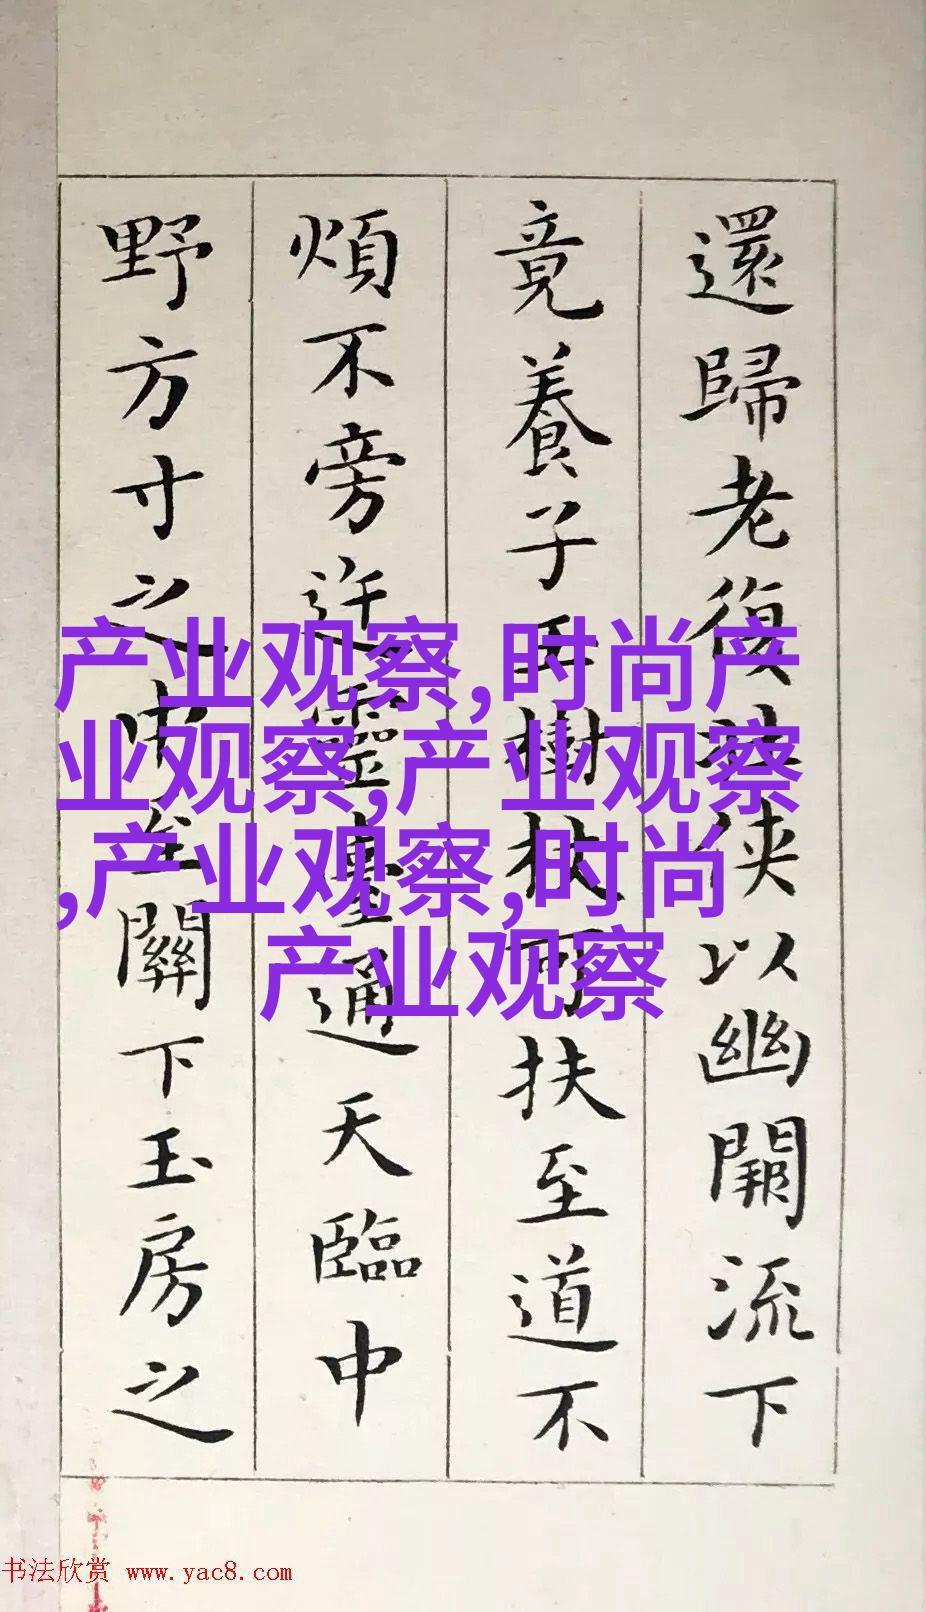 還歸老復壯俠以幽闕流下
竟養子玉樹杖可扶至道不
煩不旁迕靈臺通天臨中
野方寸之中至關下玉房之
产业观察,时尚产
业观察,产业观察
,产业观察,时尚
产业观察
书法欣赏 www.yac8.com